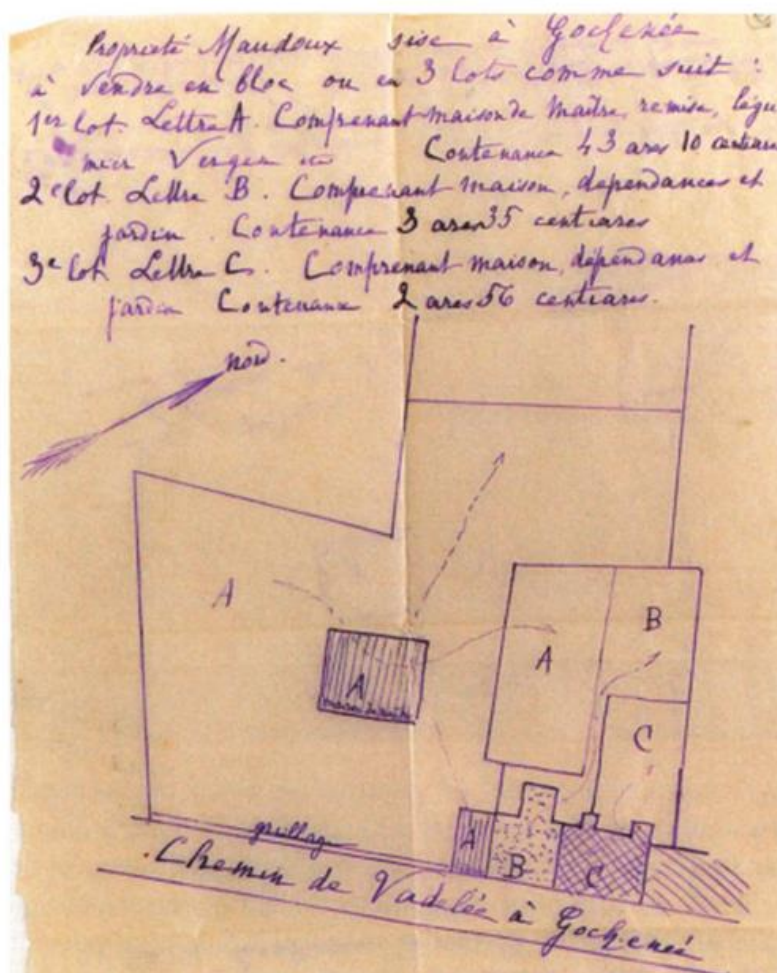 Propriété Maudoux sise à Gochenée
à vendre en bloc ou en 3 lots comme suit :
1er lot. Lettre A. Comprenant maison de Maître, remise, légu
mier Verger etc Contenance 43 ares 10 centiares
2e lot. Lettre B. Comprenant maison, dépendances et
jardin. Contenance 3 ares 35 centiares
3e lot Lettre C. Comprenant maison, dépendances et
jardin Contenance 2 ares 56 centiares.
nord.
A
B
A
A
maison de maître
C
grillage
A
B
C
Chemin de Vodelée à Gochenée